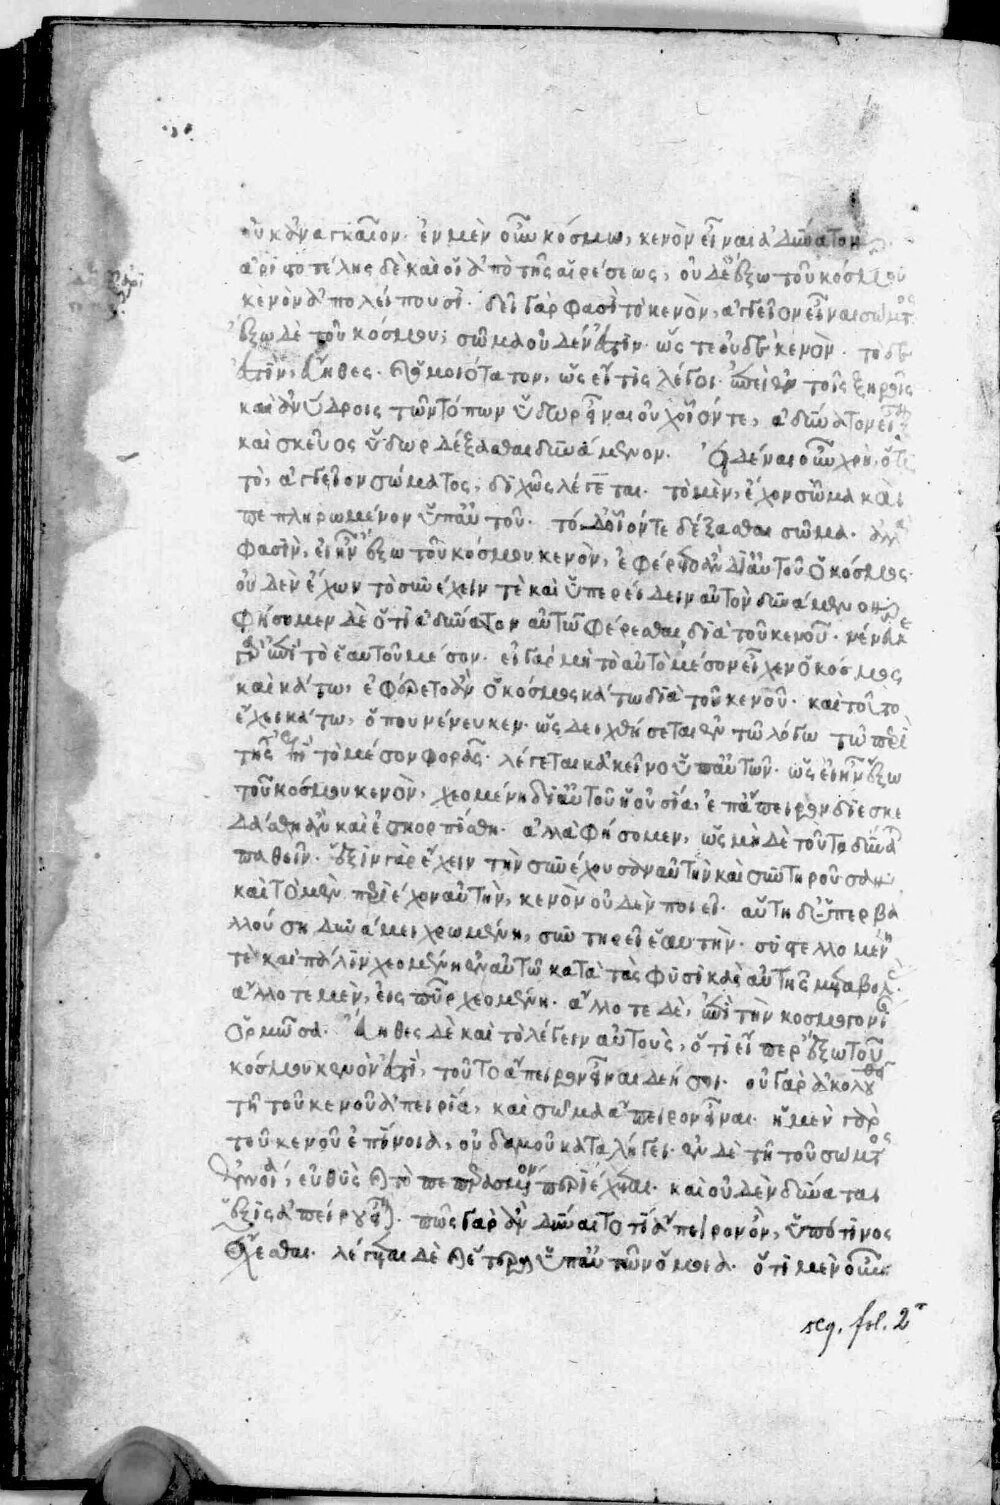 οὐκ ἀναγκαῖον. ἐν μὲν οὖν κόσμω, κενὸν εἶναι ἀδύνατον
ἀριστοτέλης δὲ καὶ οἱ ἀπὸ τῆς αἱρέσεως, οὐδὲ ἔξω τοῦ κόσμου
κενὸν ἀπολείπουσι. δεῖ γὰρ φασὶ τὸ κενὸν, ἀγγεῖον εἶναι σώματος
ἔξω δὲ τοῦ κόσμου, σῶμα οὐδέν ἐστιν. ὥστε οὐδὲ κενὸν. τὸ δέ
ἐστὶν, εὔηθες. καὶ ὁμοιότατον, ὡς εἴ τις λέγοι. ἐπεὶ ἐν τοῖς ξηροῖς
καὶ ἀνύδροις τῶν τόπων ὕδωρ εἶναι οὐχ οἷόντε, ἀδύνατον εἶναι
καὶ σκεῦος ὕδωρ δέξασθαι δυνάμενον. εἰδέναι οὖν χρὴ, ὅτι
τὸ, ἀγγεῖον σώματος, διχῶς λέγεται. τὸ μὲν, ἔχον σῶμα καὶ
πεπληρωμένον ὑπ' αὐτοῦ. τὸ δὲ οἷόντε δέξασθαι σῶμα. ἀλλὰ
φασὶν, εἰ ἦν ἔξω τοῦ κόσμου κενὸν, ἐφέρετο ἂν δι' αὐτοῦ ὁ κόσμος.
οὐδὲν ἔχων τὸ συνέχειν τὲ καὶ ὑπερείδειν αὐτὸν δυνάμενον
φήσομεν δὲ ὅτι ἀδύνατον αὐτῶ φέρεσθαι διὰ τοῦ κενοῦ. νένευκε
γὰρ ἐπὶ τὸ ἑαυτοῦ μέσον. εἰ γὰρ μὴ τὸ αὐτὸ μέσον εἶχεν ὁ κόσμος
καὶ κάτω, ἐφέρετο ἂν ὁ κόσμος κάτω διὰ τοῦ κενοῦ. καὶ τοῦτο
ἔχει κάτω, ὅπου νένευκεν. ὡς δειχθήσεται ἐν τῶ λόγω τῶ περὶ
τῆς ἐπὶ τὸ μέσον φορᾶς. λέγεται κἀκεῖνο ὑπ' αὐτῶν. ὡς εἰ ἦν ἔξω
τοῦ κόσμου κενὸν, χεομένη δι' αὐτοῦ ἡ οὐσία, ἐπ' ἄπειρον διεσκε
δάσθη ἂν καὶ ἐσκορπίσθη. ἀλλὰ φήσομεν, ὡς μὴ δὲ τοῦτο δύναται
παθεῖν. ἕξιν γὰρ ἔχειν τὴν συνέχουσαν αὐτὴν καὶ συντηροῦσαν.
καὶ τὸ μὲν περιέχον αὐτὴν, κενὸν οὐδὲν ποιεῖ. αὕτη δ' ὑπερβα
λλούση δυνάμει χρωμένη, συντηρεῖ ἑαυτὴν. συστελλομένη
τὲ καὶ πάλιν χεομένη ἐν αὐτῶ κατὰ τὰς φυσικὰς αὐτῆς μεταβολάς.
ἄλλοτε μὲν, εἰς πῦρ χεομένη. ἄλλοτε δὲ, ἐπὶ τὴν κοσμογονίαν
ὁρμῶσα. εὔηθες δὲ καὶ τὸ λέγειν αὐτοὺς, ὅτι εἴπερ ἔξω τοῦ
κόσμου κενὸν ἐστὶ, τοῦτο ἄπειρον εἶναι δεήσοι. οὐ γὰρ ἀκολουθεῖ
τῆ τοῦ κενοῦ ἀπειρία, καὶ σῶμα ἄπειρον εἶναι. ἡ μὲν γὰρ
τοῦ κενοῦ ἐπίνοια, οὐδαμοῦ καταλήγει. ἐν δὲ τῆ τοῦ σώματος
ἐννοία, εὐθὺς καὶ τὸ πεπεράσθαι περιέχεται. καὶ οὐδὲν δύναται
ἕξις ἀπείρου εἶναι. πῶς γὰρ ἂν δύναιτό τι ἄπειρον ὂν, ὑπό τινος
ἔχεσθαι. λέγεται δὲ καὶ ἕτερα ὑπ' αὐτῶν ὅμοια. ὅτι μὲν οὖν
seq. fol. 2r